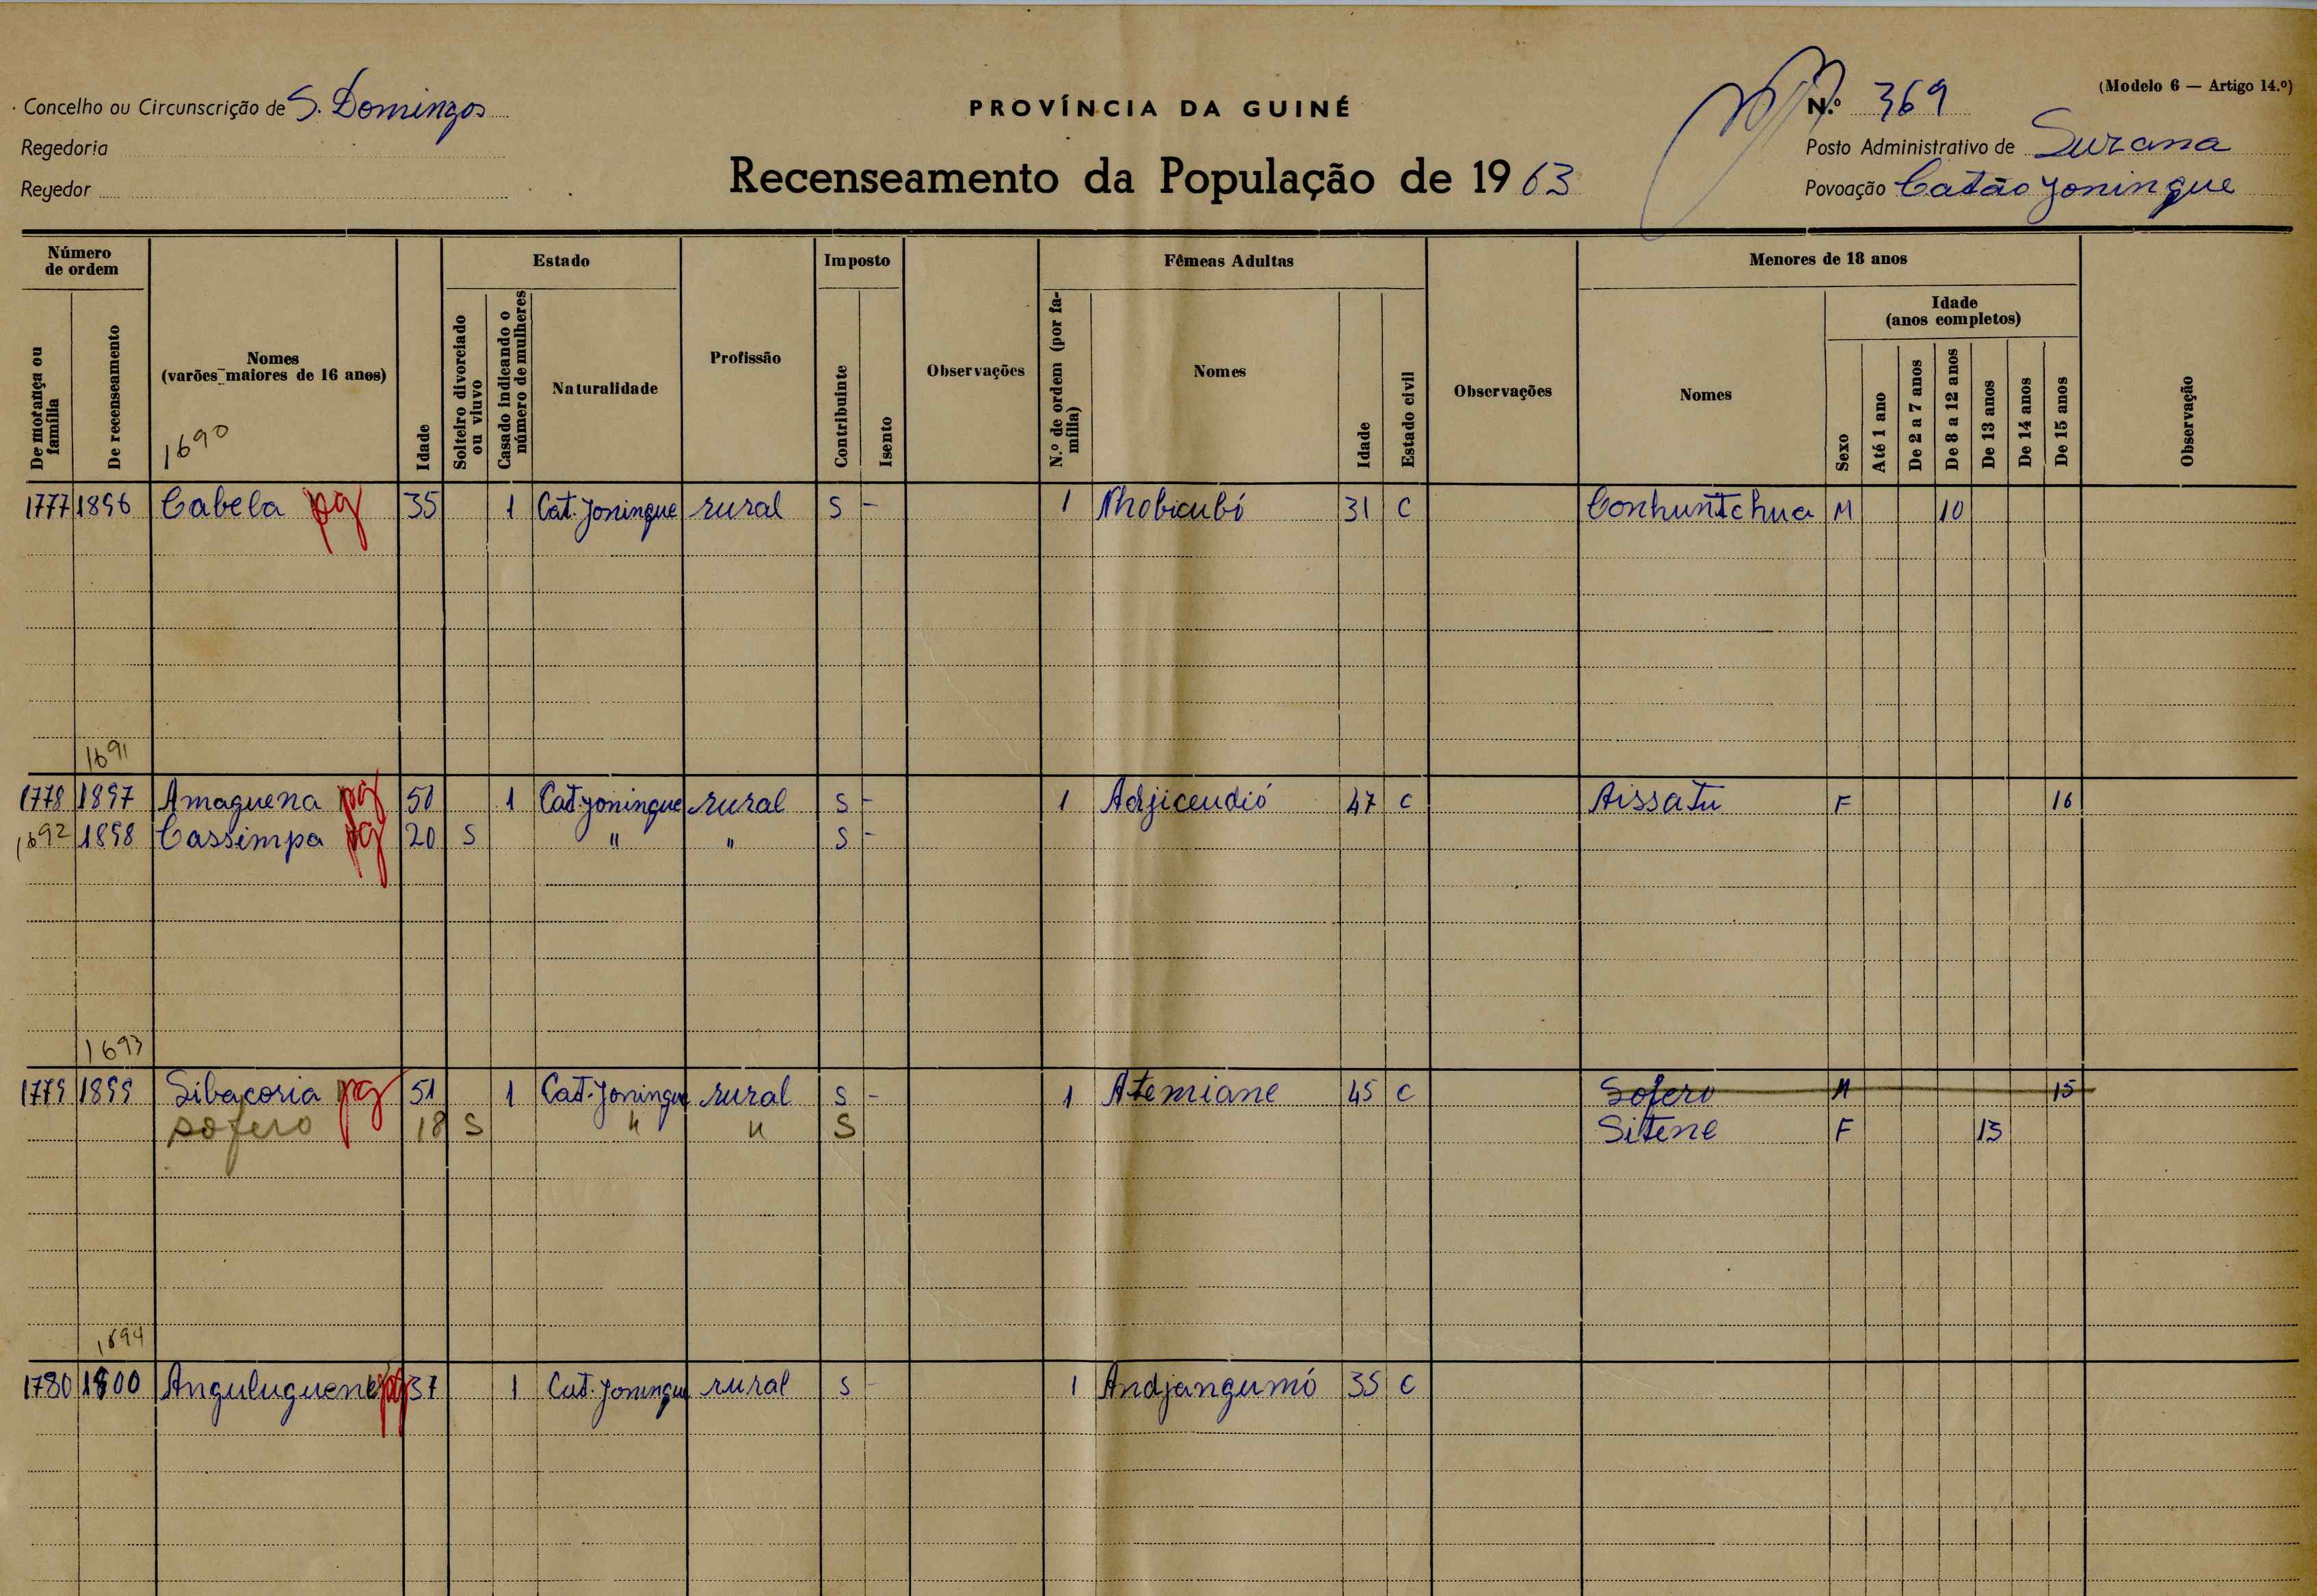 (Modelo 6 — Artigo 14.º)
Concelho ou Circunscrição de S. Domingos
PROVÍNCIA DA GUINÉ
N.º 369
Regedoria
Posto Administrativo de Suzana
Regedor
Recenseamento da População de 1963
Povoação Catão Joninque
Número de ordem
Estado
Imposto
Fêmeas Adultas
Menores de 18 anos
De morança ou família
De recenseamento
Nomes (varões maiores de 16 anos)
Idade
Solteiro divorciado ou viuvo
Casado indicando o número de mulheres
Naturalidade
Profissão
Contribuinte
Isento
Observações
N.º de ordem (por família)
Nomes
Idade
Estado civil
Observações
Nomes
Sexo
Idade (anos completos)
Até 1 ano
De 2 a 7 anos
De 8 a 12 anos
De 13 anos
De 14 anos
De 15 anos
Observação
1690
1777 1896 Cabela pg 35 1 Cat. Joninque rural S - 1 Nhobicubó 31 C Conhuntchua M 10
1691
1778 1897 Amaguena pg 50 1 Cat. Joninque rural S - 1 Adjicendió 47 C Aissatu F 16
1692 1898 Cassimpa pg 20 S " " S -
1693
1779 1899 Sibacoria pg 51 1 Cat. Joninque rural S - 1 Atemiane 45 C Sofero M 15
Sofero 18 S " " S Sitene F 13
1694
1780 1900 Anguluguene pg 37 1 Cat. Joninque rural S - 1 Andjangumó 35 C